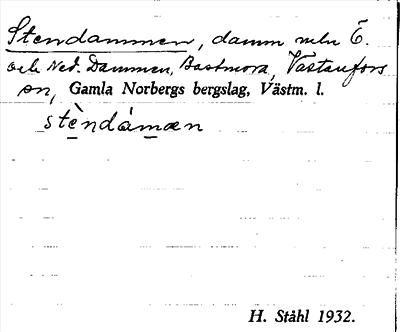 Stendammen, damm mln Ö.
och Ned. Dammen, Bastmora, Västanfors
sn, Gamla Norbergs bergslag, Västm. l.
stèndámæn
H. Ståhl 1932.